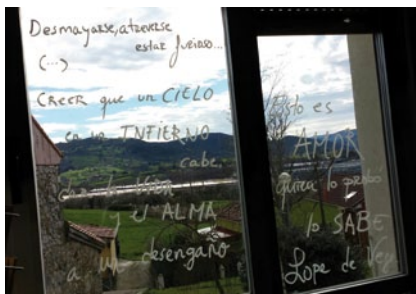 Desmayarse, atreverse
estar furioso...
(...)
CREER que un CIELO
en un INFIERNO
cabe,
dar la VIDA
y el ALMA
a un desengaño
Esto es
AMOR
quien lo probó
lo SABE
Lope de Veg